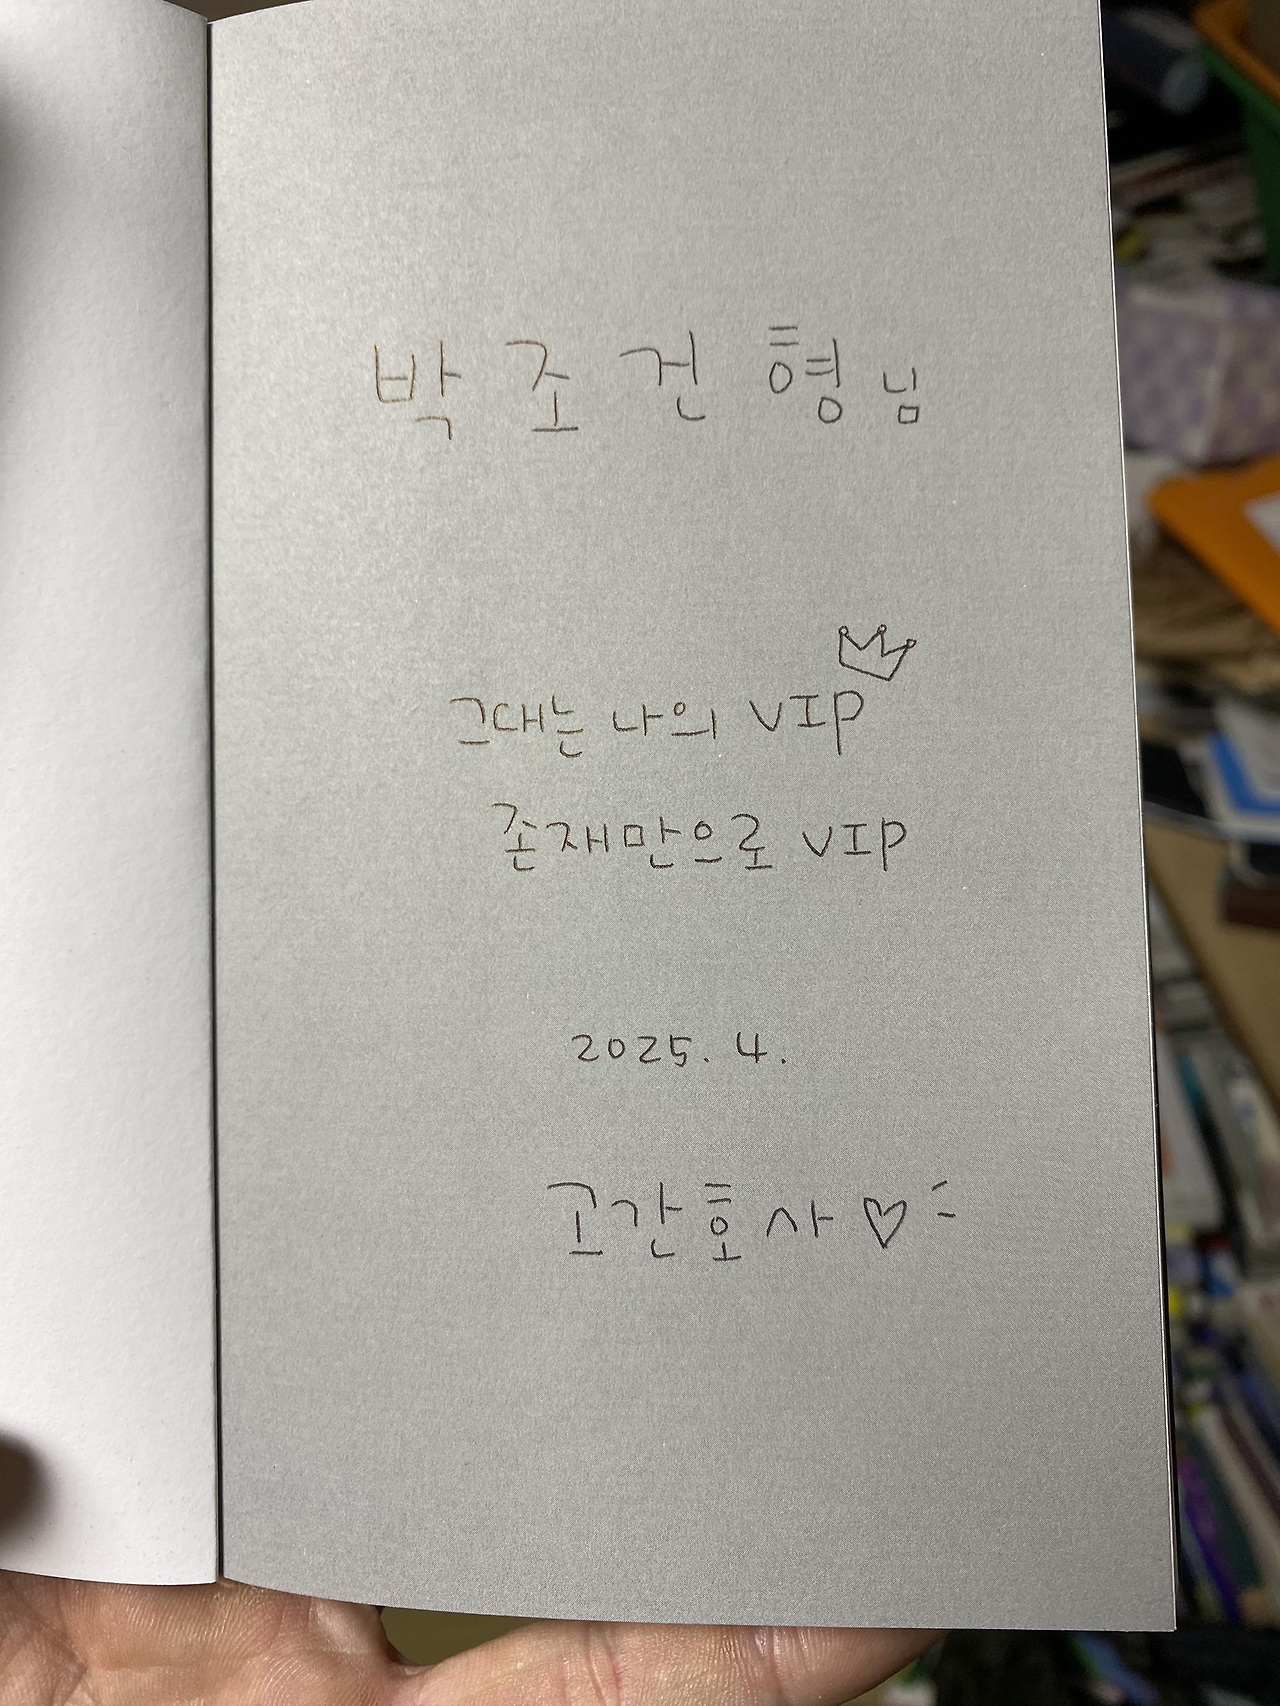 박조건형님
그대는 나의 VIP
존재만으로 VIP
2025. 4.
고간호사♡